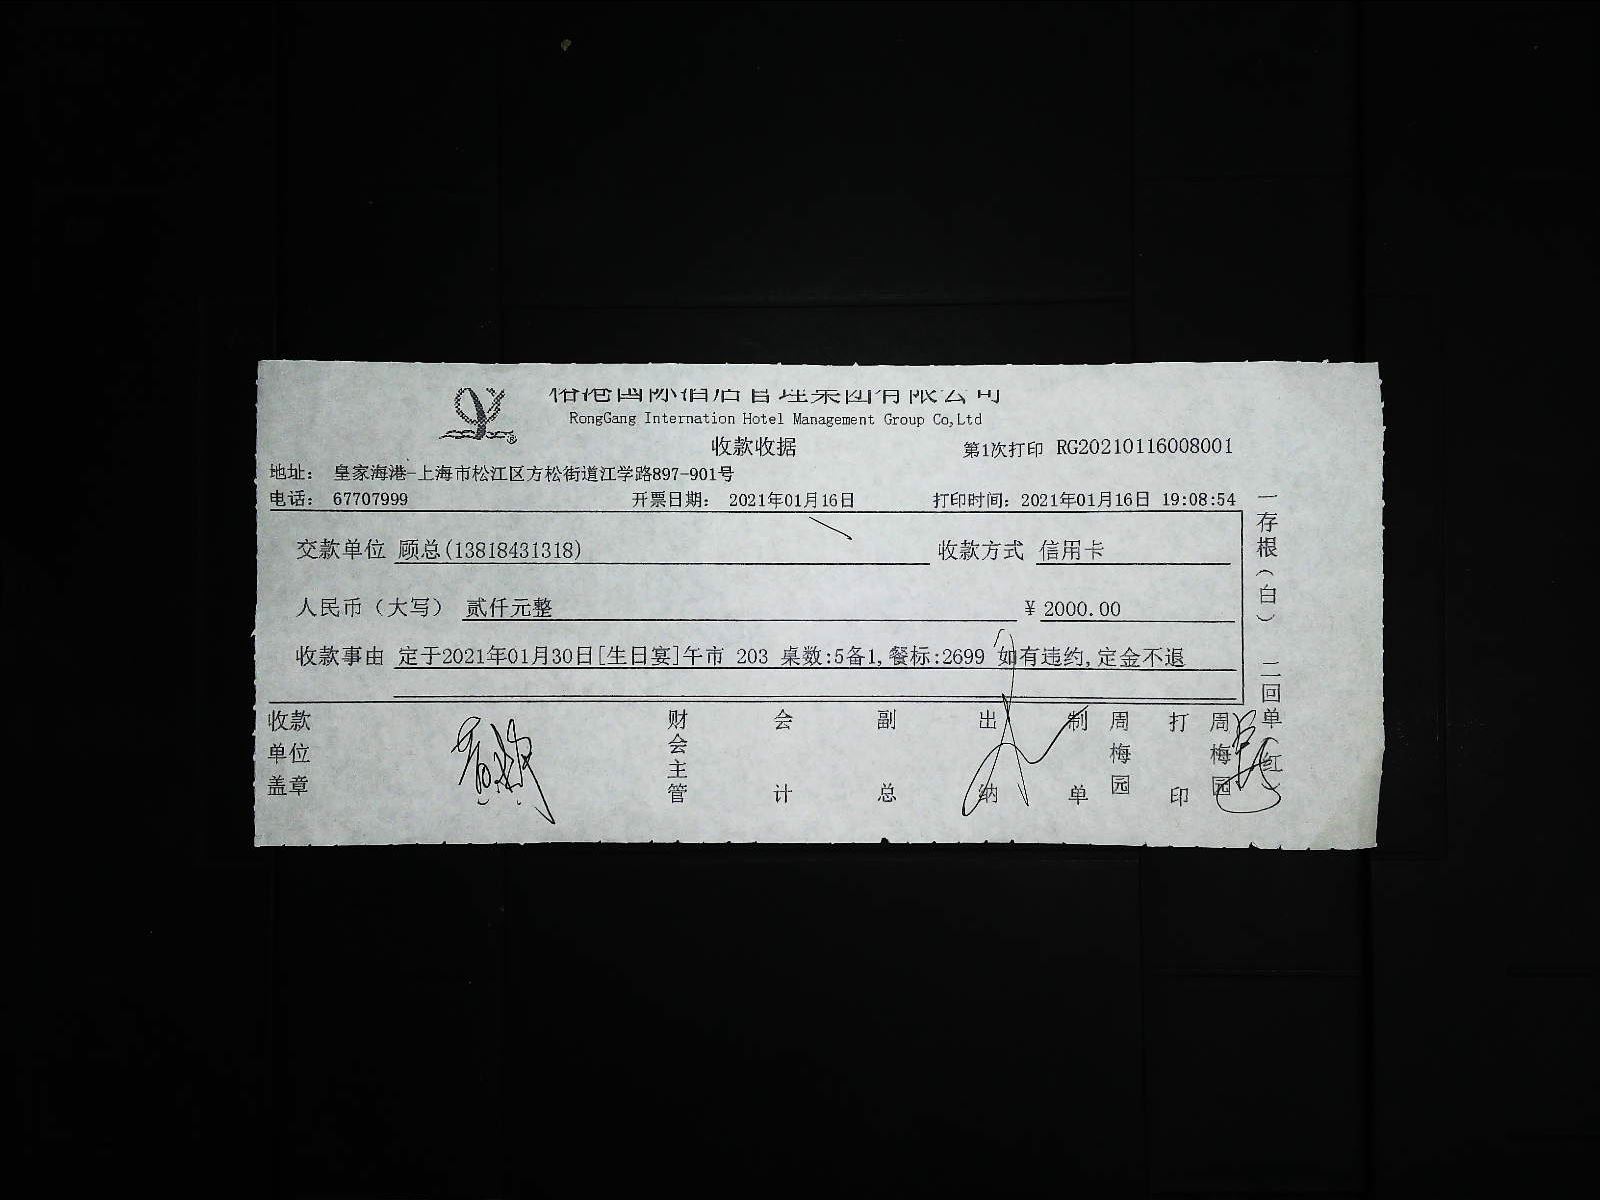 国际酒店管理集团有限公司
RongGang Internation Hotel Management Group Co,Ltd
收款收据
第1次打印 RG20210116008001
地址： 皇家海港-上海市松江区方松街道江学路897-901号
电话： 67707999 开票日期： 2021年01月16日 打印时间：2021年01月16日 19:08:54
交款单位 顾总(13818431318) 收款方式 信用卡
人民币（大写） 贰仟元整 ¥ 2000.00
收款事由 定于2021年01月30日[生日宴]午市 203 桌数:5备1,餐标:2699 如有违约,定金不退
收款单位盖章 财会主管 会计 副总 出纳 制单 周梅园 打印 周梅园
一存根（白） 二回单（红）